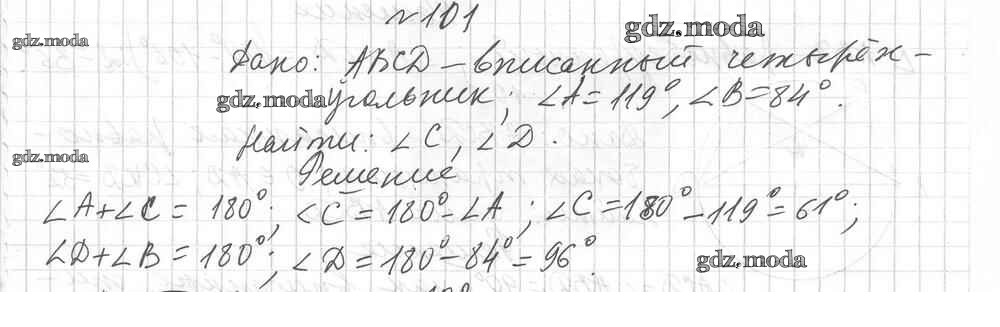 №101
gdz.moda
gdz.moda
Дано: ABCD – вписанный четырёх-
gdz.moda
угольник; ∠A = 119°, ∠B = 84°.
Найти: ∠C, ∠D.
gdz.moda
Решение
∠A + ∠C = 180°; ∠C = 180° - ∠A; ∠C = 180° - 119° = 61°;
∠D + ∠B = 180°; ∠D = 180° - 84° = 96°.
gdz.moda